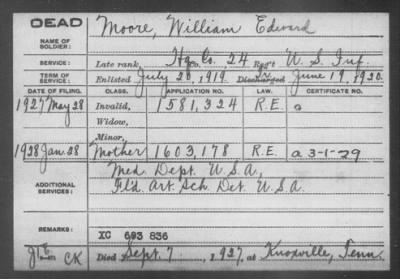 DEAD
Moore, William Edward
NAME OF SOLDIER:
SERVICE: Late rank, Hq Co. 24 Reg't U.S. Inf.
TERM OF SERVICE: Enlisted July 20, 1919 Discharged June 19, 1920.
DATE OF FILING. CLASS. APPLICATION NO. LAW. CERTIFICATE NO.
1927 May 28 Invalid, 1581,324 R.E. a
Widow,
Minor,
1928 Jan. 28 Mother 1603,178 R.E. a 3-1-29
ADDITIONAL SERVICES: Med. Dept. U.S.A,
Fld. Art. Sch. Det. U.S.A.
REMARKS: XC 693 836
CK Died Sept. 7, 1927, at Knoxville, Tenn.